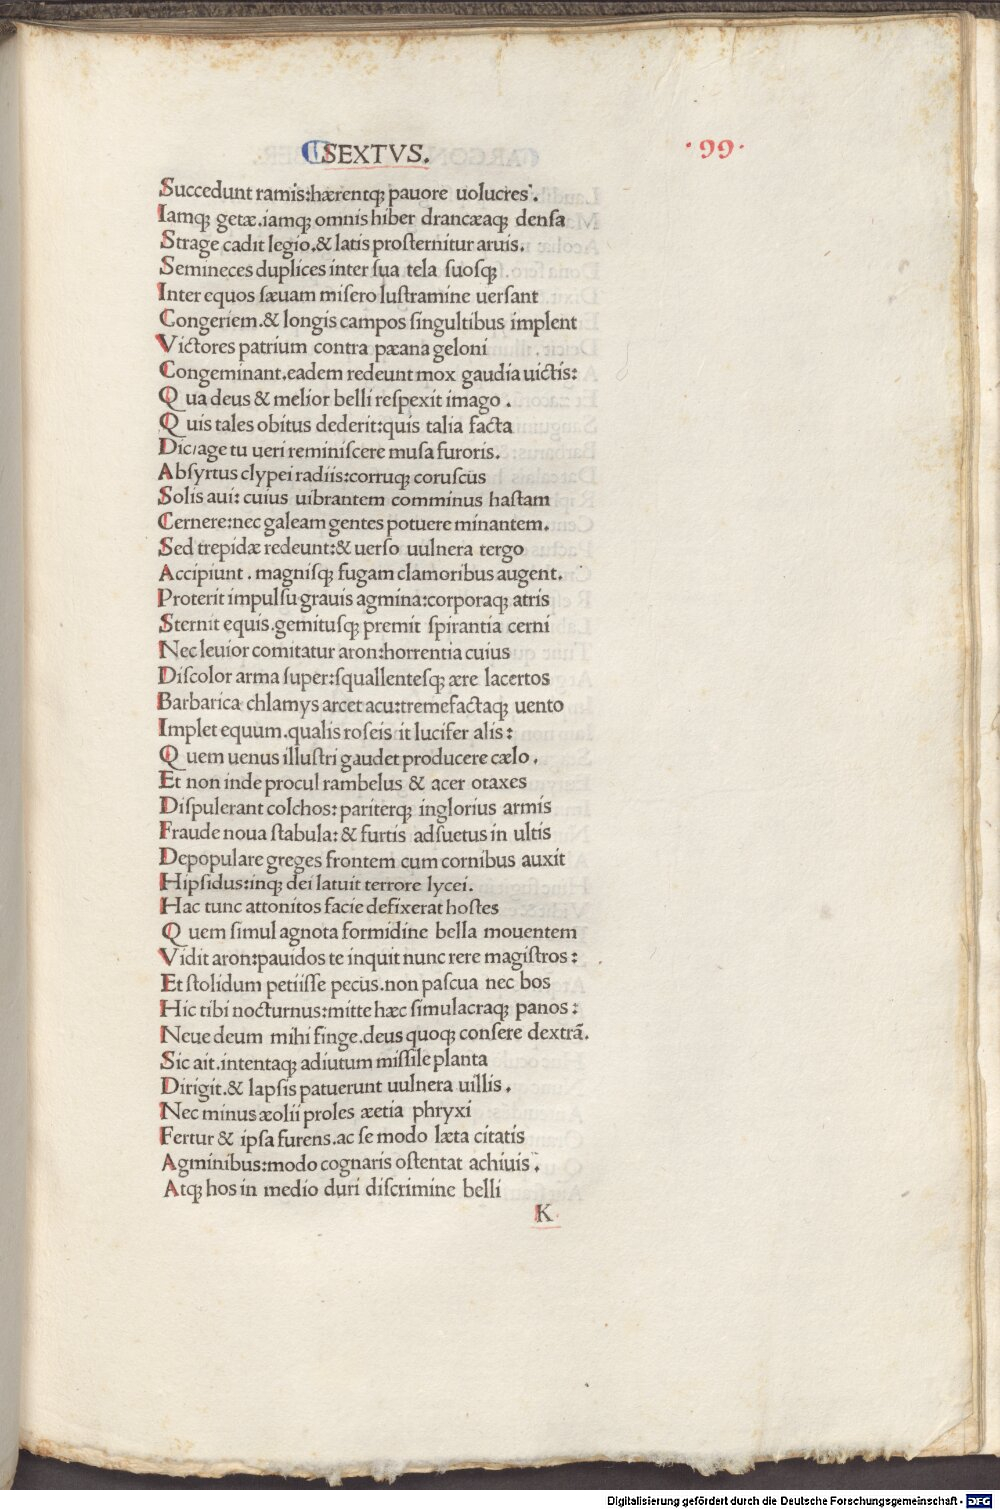 SEXTVS.
·99·
Succedunt ramis:hærentq; pauore uolucres.
Iamq; getæ.iamq; omnis hiber drancæaq; densa
Strage cadit legio.& latis prosternitur aruis.
Semineces duplices inter sua tela suosq;
Inter equos sæuam misero lustramine uersant
Congeriem.& longis campos singultibus implent
Victores patrium contra pæana geloni
Congeminant.eadem redeunt mox gaudia uictis:
Qua deus & melior belli respexit imago.
Quis tales obitus dederit:quis talia facta
Dic/age tu ueri reminiscere musa furoris.
Absyrtus clypei radiis:corruq; coruscus
Solis aui: cuius uibrantem comminus hastam
Cernere:nec galeam gentes potuere minantem.
Sed trepidæ redeunt:& uerso uulnera tergo
Accipiunt. magnisq; fugam clamoribus augent.
Proterit impulsu grauis agmina:corporaq; atris
Sternit equis.gemitusq; premit spirantia cerni
Nec leuior comitatur aron:horrentia cuius
Discolor arma super:squallentesq; ære lacertos
Barbarica chlamys arcet acu:tremefactaq; uento
Implet equum.qualis roseis it lucifer alis:
Quem uenus illustri gaudet producere cælo.
Et non inde procul rambelus & acer otaxes
Dispulerant colchos: pariterq; inglorius armis
Fraude noua stabula:& furtis adsuetus in ultis
Depopulare greges frontem cum cornibus auxit
Hipsidus:inq; dei latuit terrore lycei.
Hac tunc attonitos facie defixerat hostes
Quem simul agnota formidine bella mouentem
Vidit aron:pauidos te inquit nunc rere magistros:
Et stolidum petiisse pecus.non pascua nec bos
Hic tibi nocturnus:mitte hæc simulacraq; panos:
Neue deum mihi finge.deus quoq; consere dextrā.
Sic ait.intentaq; adiutum missile planta
Dirigit.& lapsis patuerunt uulnera uillis.
Nec minus æolii proles æetia phryxi
Fertur & ipsa furens.ac se modo læta citatis
Agminibus:modo cognaris ostentat achiuis.
Atq; hos in medio duri discrimine belli
K
Digitalisierung gefördert durch die Deutsche Forschungsgemeinschaft - DFG